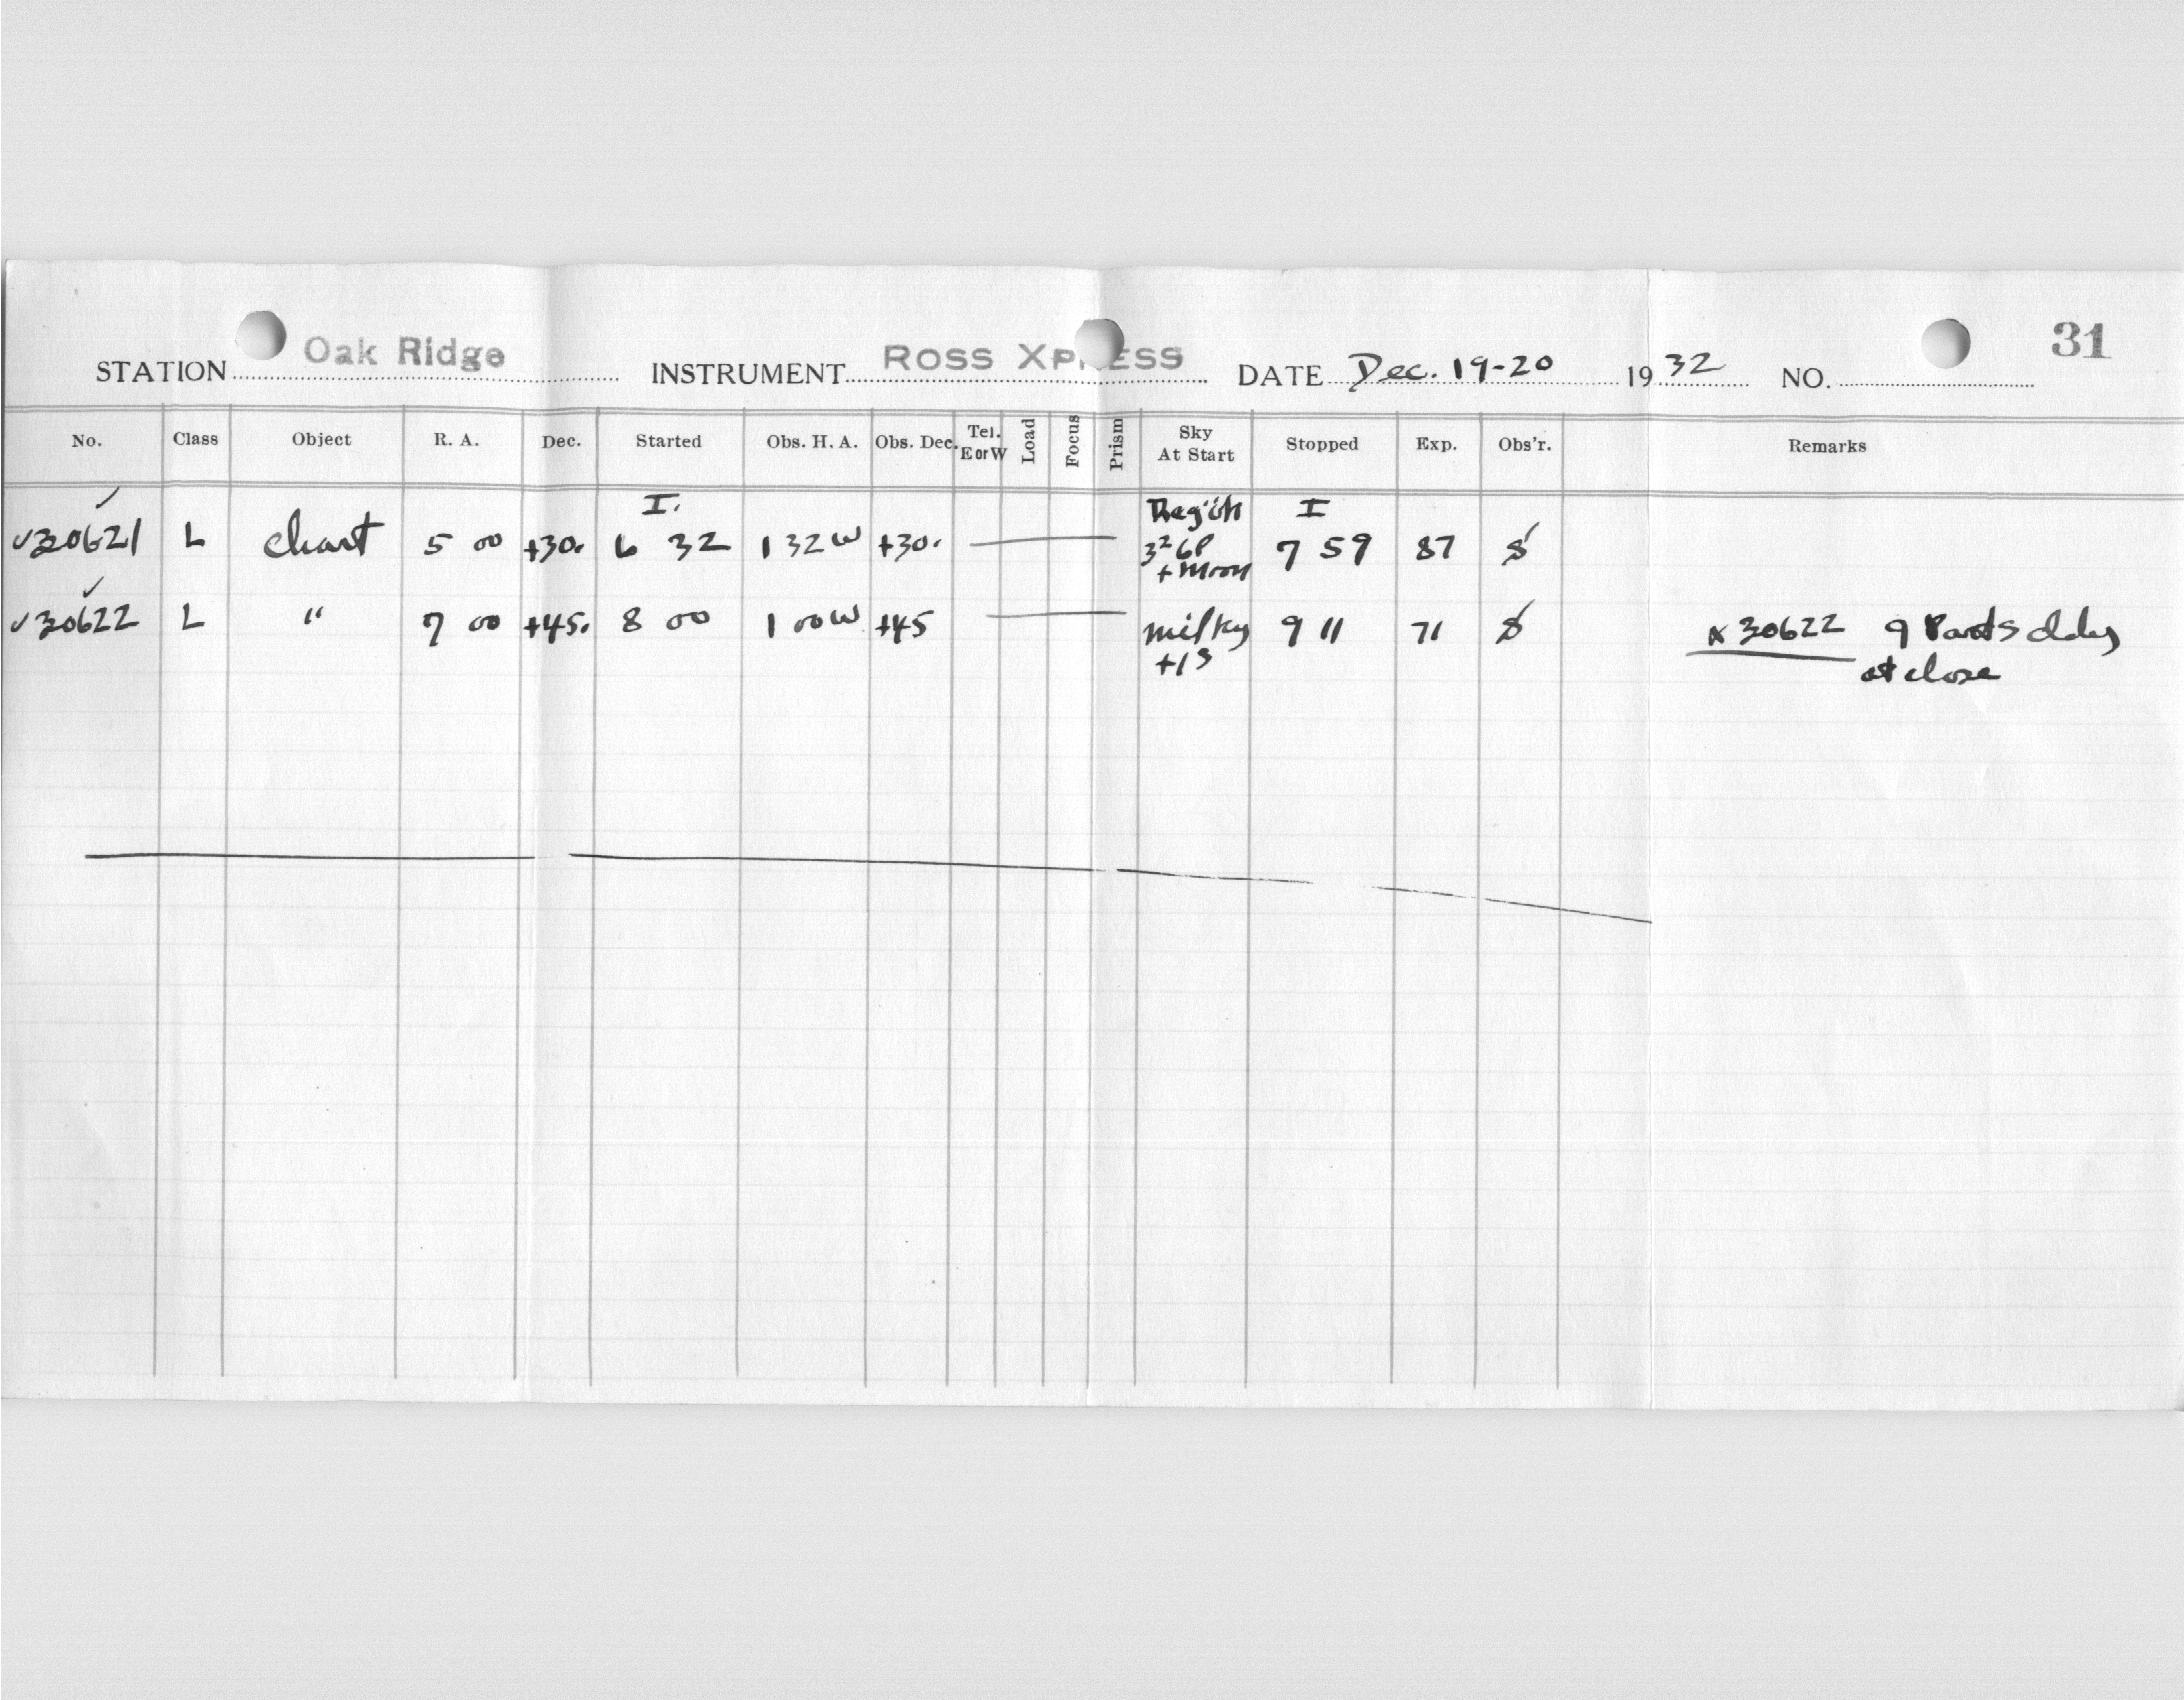 31
STATION Oak Ridge INSTRUMENT ROSS XPRESS DATE Dec. 19-20 1932 NO.
No. Class Object R. A. Dec. Started Obs. H. A. Obs. Dec. Tel. E or W Load Focus Prism Sky At Start Stopped Exp. Obs'r. Remarks
I. I
30621 L chart 5 00 +30. 6 32 1 32 W +30. 7 59 87
+ Moon
30622 L " 7 00 +45. 8 00 1 00 W +45 milky 9 11 71 30622 9
+1s at close